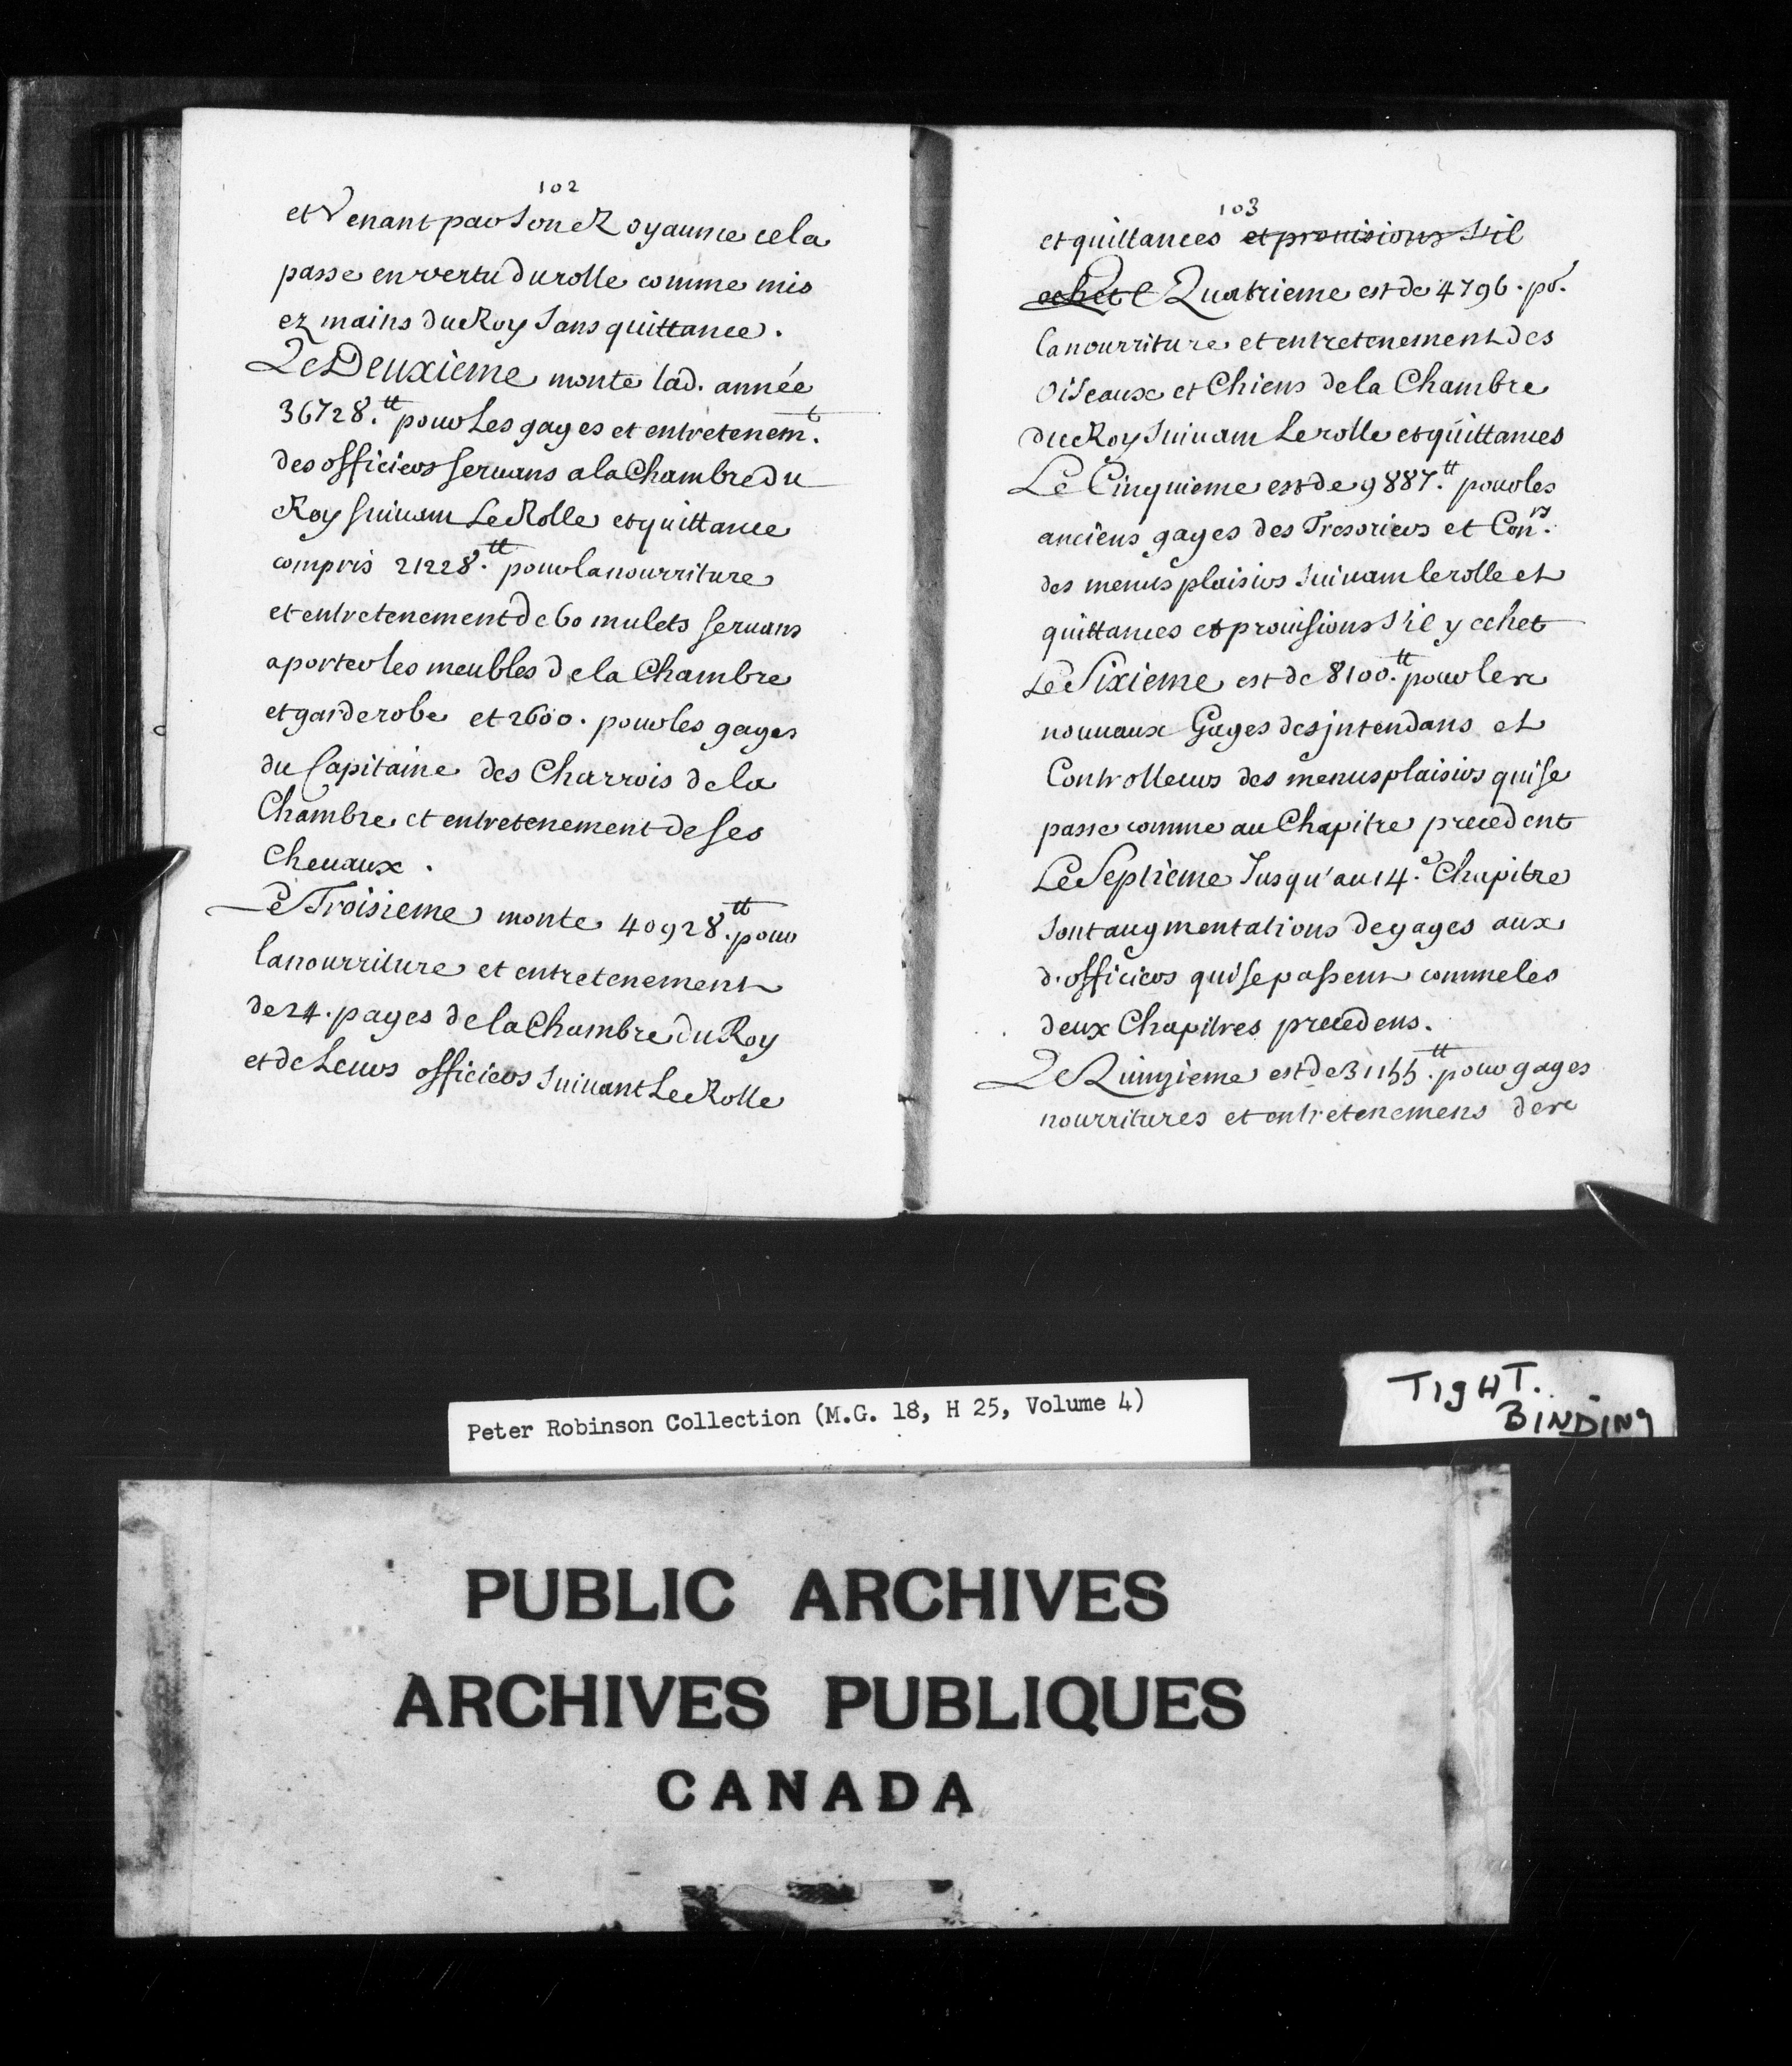 102
et Venant par Son Royaume cela
passe en vertu du rolle comme mis
ez mains du Roy Sans quittance.
Le Deuxieme monte lad. année
36728.tt pour Les gages et entretenemt.
des officiers servans a la Chambre du
Roy suivam Le Rolle et quittance
compris 21228.tt pour la nourriture
et entretenement de 60 mulets servans
a porter les meubles de la Chambre
et garderobe et 2600. pour les gages
du Capitaine des Charrois de la
Chambre et entretenement de ses
Chevaux.
Le Troisieme monte 40928.tt pour
la nourriture et entretenement
de 24. pages de la Chambre du Roy
et de Leurs officiers Suivant Le Rolle
103
et quittances et provisions S'il
echet Le Quatrieme est de 4796. pr.
la nourriture et entretenement des
Oiseaux et Chiens de la Chambre
du Roy Suivam Le rolle et quittances
Le Cinquieme est de 9887.tt pour les
anciens gages des Tresoriers et Conrs.
des menus plaisirs Suivam le rolle et
quittances et provisions S'il y echet
Le Sixieme est de 8100.tt pour les
nouvaux Gages des jntendans et
Controlleurs des menus plaisirs qui se
passe comme au Chapitre precedent
Le Septieme Jusqu'au 14.e Chapitre
Sont augmentations de gages aux
d. officiers qui se passent comme les
deux Chapitres precedens.
Le Quinzieme est de 31155.tt pour gages
nourritures et entretenemens des
Peter Robinson Collection (M.G. 18, H 25, Volume 4)
TIGHT.
BINDING
PUBLIC ARCHIVES
ARCHIVES PUBLIQUES
CANADA